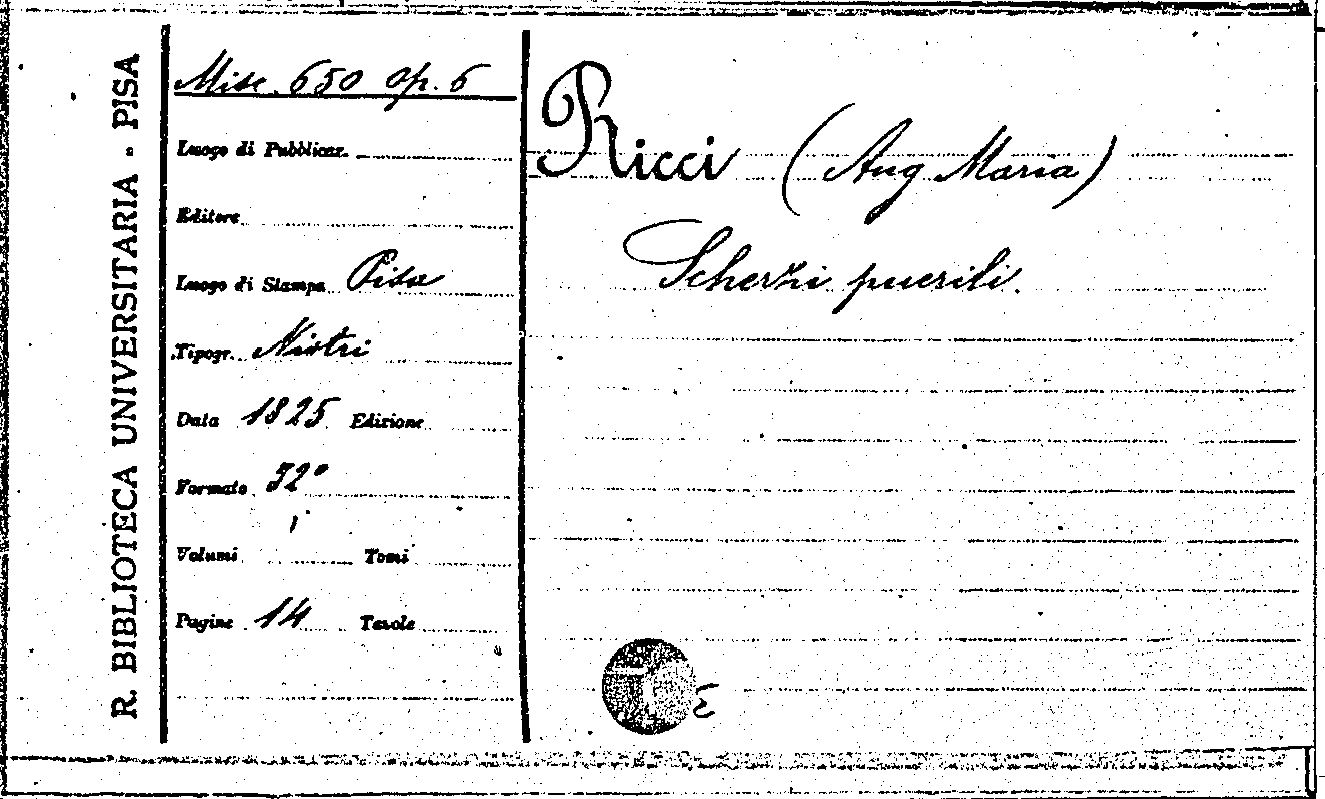 R. BIBLIOTECA UNIVERSITARIA - PISA
Misc. 650 op. 6
Luogo di Pubblicaz.
Editore
Luogo di Stampa Pisa
Tipogr. Nistri
Data 1825 Edizione
Formato 32°
Volumi Tomi
Pagine 14 Tavole
Ricci (Ang Maria)
Scherzi puerili.